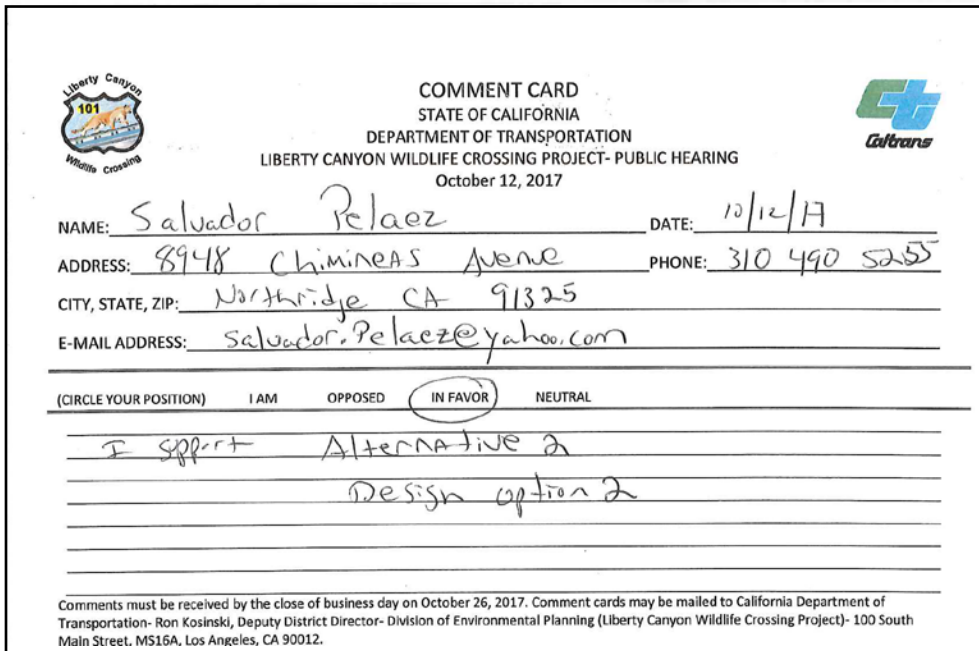 Liberty Canyon
101
Wildlife Crossing
COMMENT CARD
STATE OF CALIFORNIA
DEPARTMENT OF TRANSPORTATION
LIBERTY CANYON WILDLIFE CROSSING PROJECT- PUBLIC HEARING
October 12, 2017
Caltrans
NAME: Salvador Pelaez DATE: 10/12/17
ADDRESS: 8948 Chimineas Avenue PHONE: 310 490 5255
CITY, STATE, ZIP: Northridge CA 91325
E-MAIL ADDRESS: Salvador.Pelaez@yahoo.com
(CIRCLE YOUR POSITION) I AM OPPOSED IN FAVOR NEUTRAL
I spport Alternative 2
Design option 2
Comments must be received by the close of business day on October 26, 2017. Comment cards may be mailed to California Department of
Transportation- Ron Kosinski, Deputy District Director- Division of Environmental Planning (Liberty Canyon Wildlife Crossing Project)- 100 South
Main Street, MS16A, Los Angeles, CA 90012.